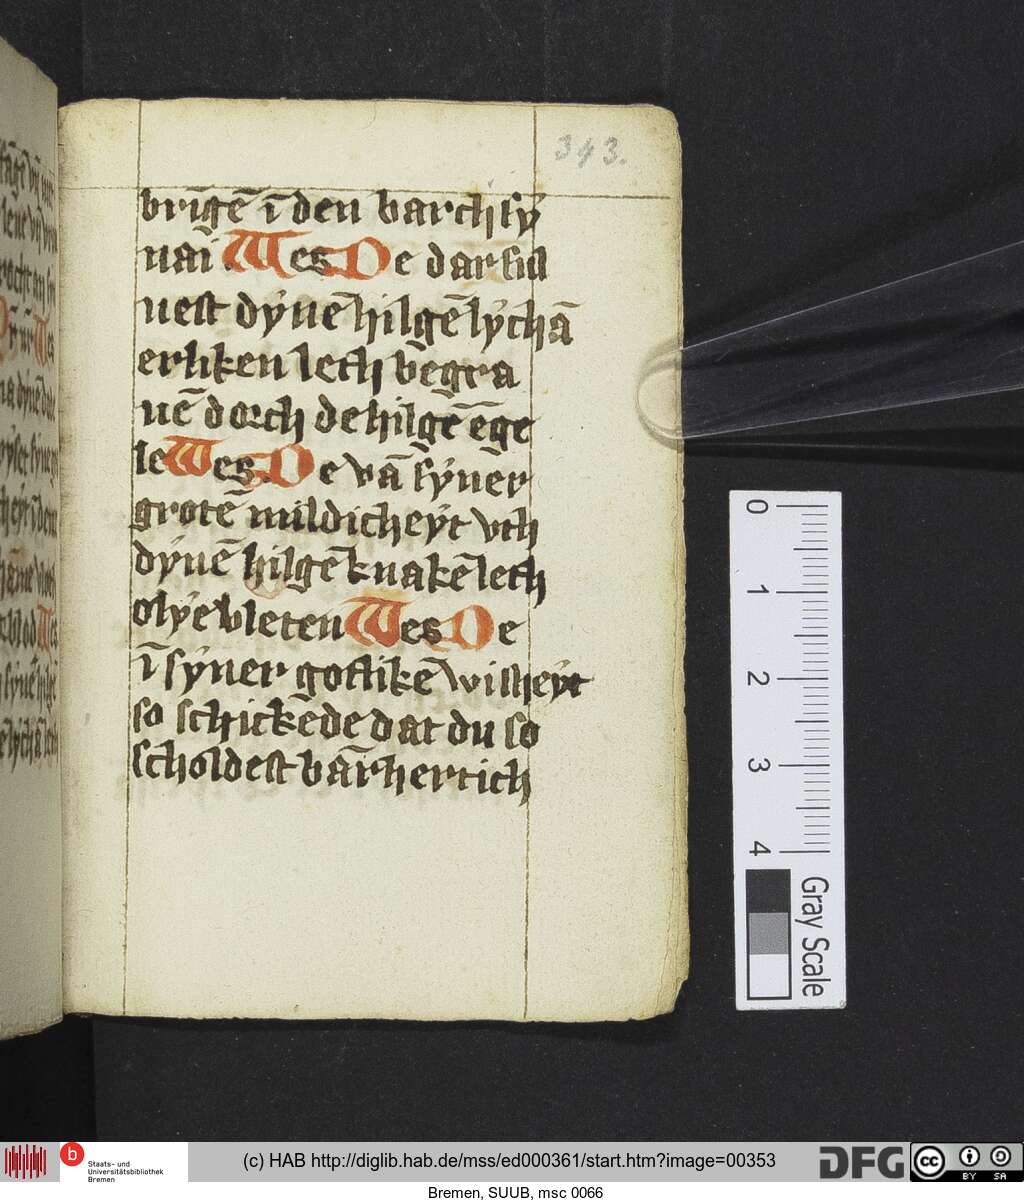 343.
brīgē ī den barch sẏ
nai Wes De dar sul
uest dẏnē hilgē lẏchā
erliken leth begra
uē dorch de hilgē ēge
le Wes De vā sẏner
grotē mildicheẏt vth
dẏnē hilgē knakē leth
olẏe vleten Wes De
ī sẏner gotlikē wisheẏt
so schickēde dat du so
scholdest bārhertich
0
1
2
3
4
Gray Scale
b
Staats- und
Universitätsbibliothek
Bremen
(c) HAB http://diglib.hab.de/mss/ed000361/start.htm?image=00353
DFG
cc BY SA
Bremen, SUUB, msc 0066